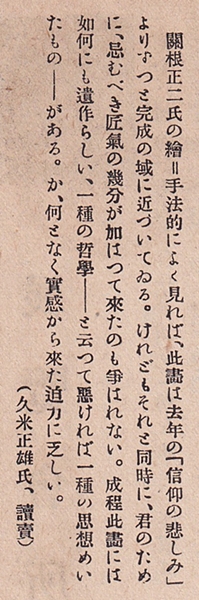 關根正二氏の繪＝手法的によく見れば、此畵は去年の「信仰の悲しみ」
よりずつと完成の域に近づいてゐる。けれどもそれと同時に、君のため
に、忌むべき匠氣の幾分が加はつて來たのも爭はれない。成程此畵には
如何にも遺作らしい、一種の哲學――と云つて惡ければ一種の思想めい
たもの――がある。が、何となく實感から來た迫力に乏しい。
（久米正雄氏、讀賣）